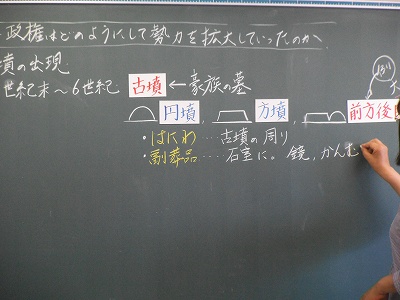 政権はどのようにして勢力を拡大していったのか
墳の出現
世紀末～6世紀 古墳 ← 豪族の墓
円墳, 方墳, 前方後
・はにわ……古墳の周り
・副葬品……石室に。鏡,かんむ